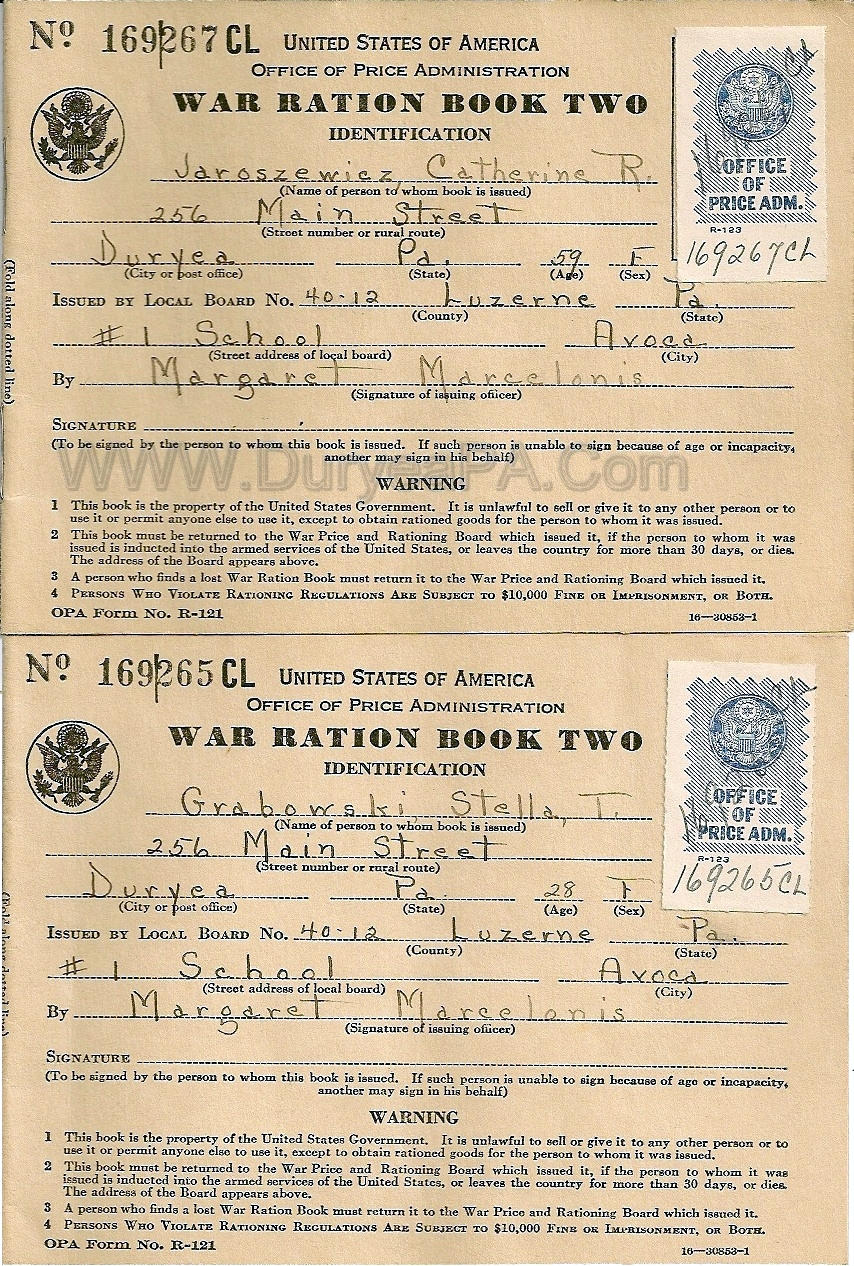 Nº 169267 CL
UNITED STATES OF AMERICA
OFFICE OF PRICE ADMINISTRATION
WAR RATION BOOK TWO
IDENTIFICATION
OFFICE
OF
PRICE ADM.
R-123
169267CL
Jaroszewicz, Catherine R.
(Name of person to whom book is issued)
256 Main Street
(Street number or rural route)
Duryea Pa. 59 F
(City or post office) (State) (Age) (Sex)
ISSUED BY LOCAL BOARD No. 40-12 Luzerne Pa.
(County) (State)
#1 School Avoca
(Street address of local board) (City)
By Margaret Marcelonis
(Signature of issuing officer)
SIGNATURE
(To be signed by the person to whom this book is issued. If such person is unable to sign because of age or incapacity,
another may sign in his behalf)
WWW.DuryeaPA.Com
WARNING
1 This book is the property of the United States Government. It is unlawful to sell or give it to any other person or to
use it or permit anyone else to use it, except to obtain rationed goods for the person to whom it was issued.
2 This book must be returned to the War Price and Rationing Board which issued it, if the person to whom it was
issued is inducted into the armed services of the United States, or leaves the country for more than 30 days, or dies.
The address of the Board appears above.
3 A person who finds a lost War Ration Book must return it to the War Price and Rationing Board which issued it.
4 PERSONS WHO VIOLATE RATIONING REGULATIONS ARE SUBJECT TO $10,000 FINE OR IMPRISONMENT, OR BOTH.
OPA Form No. R-121 16—30853-1
(Fold along dotted line)
Nº 169265 CL
UNITED STATES OF AMERICA
OFFICE OF PRICE ADMINISTRATION
WAR RATION BOOK TWO
IDENTIFICATION
OFFICE
OF
PRICE ADM.
R-123
169265CL
Grabowski, Stella, T.
(Name of person to whom book is issued)
256 Main Street
(Street number or rural route)
Duryea Pa. 28 F
(City or post office) (State) (Age) (Sex)
ISSUED BY LOCAL BOARD No. 40-12 Luzerne Pa.
(County) (State)
#1 School Avoca
(Street address of local board) (City)
By Margaret Marcelonis
(Signature of issuing officer)
SIGNATURE
(To be signed by the person to whom this book is issued. If such person is unable to sign because of age or incapacity,
another may sign in his behalf)
WARNING
1 This book is the property of the United States Government. It is unlawful to sell or give it to any other person or to
use it or permit anyone else to use it, except to obtain rationed goods for the person to whom it was issued.
2 This book must be returned to the War Price and Rationing Board which issued it, if the person to whom it was
issued is inducted into the armed services of the United States, or leaves the country for more than 30 days, or dies.
The address of the Board appears above.
3 A person who finds a lost War Ration Book must return it to the War Price and Rationing Board which issued it.
4 PERSONS WHO VIOLATE RATIONING REGULATIONS ARE SUBJECT TO $10,000 FINE OR IMPRISONMENT, OR BOTH.
OPA Form No. R-121 16—30853-1